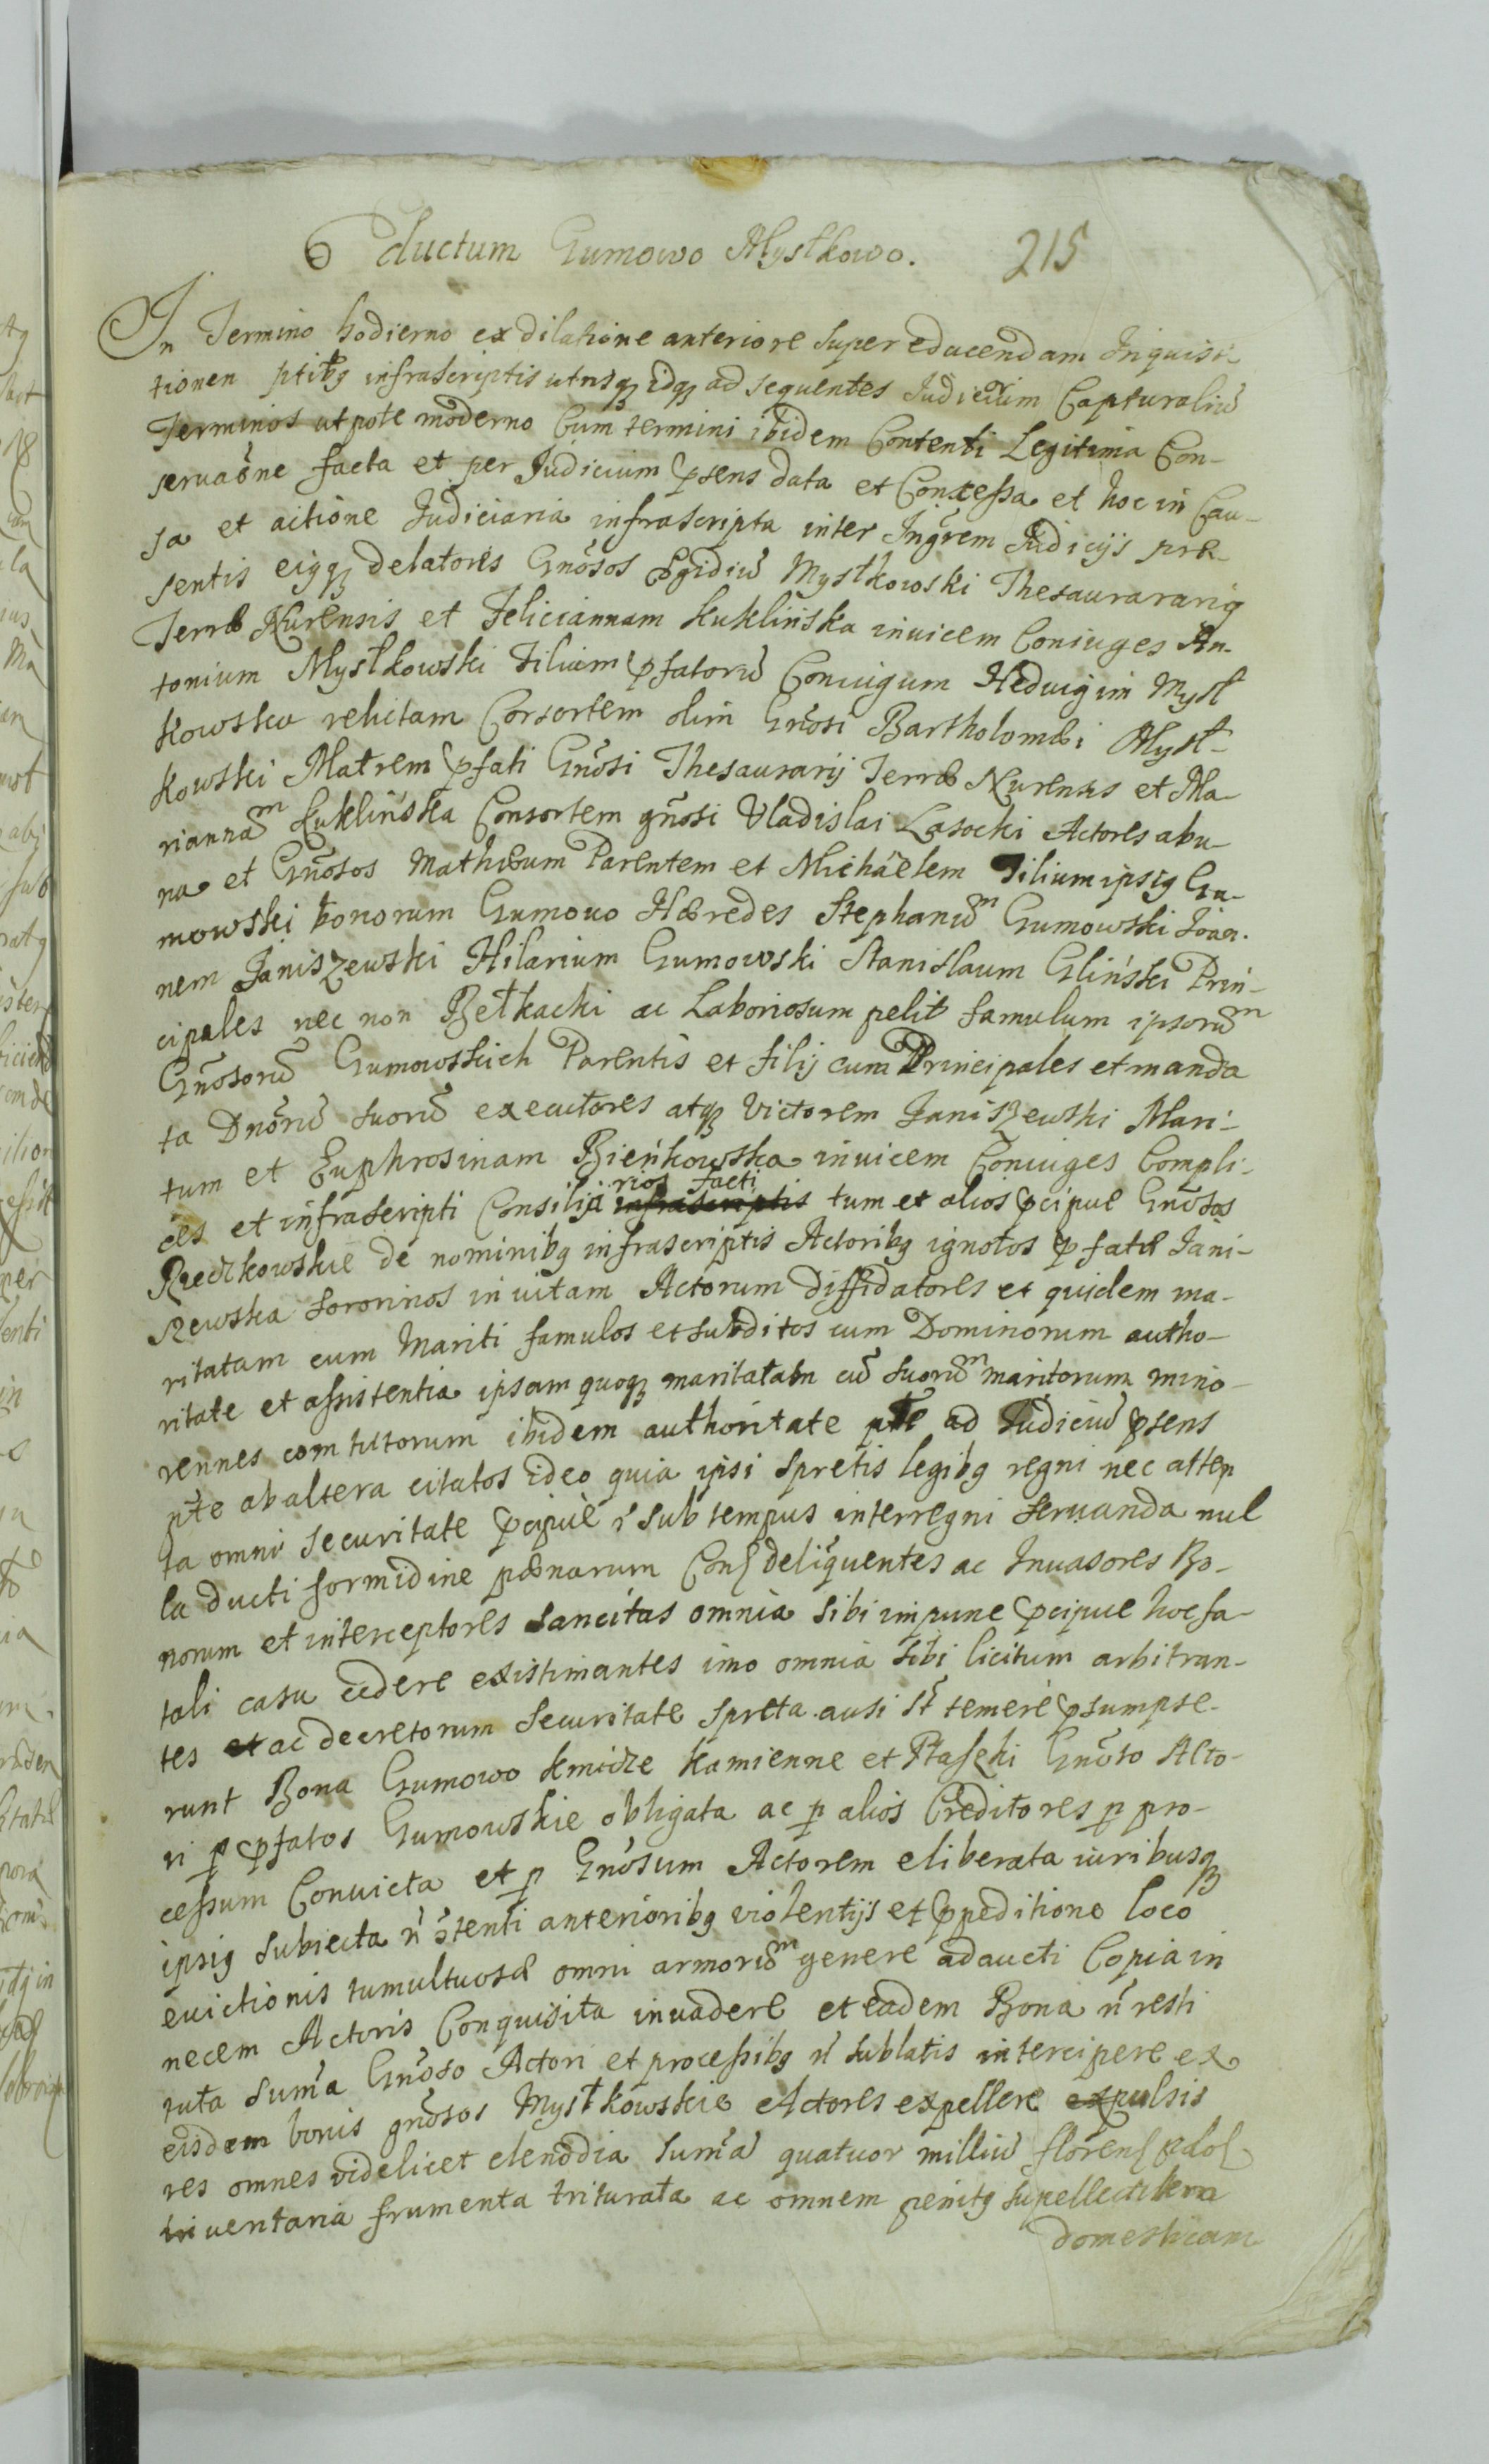 Eductum Gumowo Mystkowo. 215
In Termino hodierno ex dilatione anteriore super educendam Inquisi-
tionen ptibq infrascriptis utrisq idq ad sequentes Judiciorum Capturaliū
Terminos utpote moderno Cum termini ibidem Contenti Legitima Con-
seruaōne facta et per Judicium psens data et Concessa et hoc in Cau-
sa et actione Judiciaria infrascripta inter Ingrem Judicijs prae-
sentis eiqq delatores Gnōsos Egidiū Mystkowski Thesaurarariq
Terrae Nurensis et Feliciannam Kuklińska inuicem Coniuges An-
tonium Mystkowski Filium pfatorū Coniugum Heduigim Myst
kowska relictam Corsortem olim Gnōsi Bartholomaei Myst-
kowski Matrem pfati Gnōsi Thesaurarij Terrae Nurensis et Ma-
riannam Kuklińska Consortem gnōsi Vladislai Lasocki Actores abu-
na et Gnōsos Mathaeum Parentem et Michäelem Filium ipsiq Gu-
mowski bonorum Gumowo Haeredes Stephanūm Gumowski Joan-
nem Janiszewski Hilarium Gumowski Stanislaum Gliński Prin-
cipales nec non Betkachi ac Laboriosum pelit famulum ipsorūm
Gnōsorū Gumowskich Parentis et filij cum Principales et manda
ta Dnōrū suorū executores atq Victorem Janiszewski Mari-
tum et Euphrosinam Bieńkowska inuicem Coniuges Compli-
ces et infrascripti Consilia rios facti infrascriptis tum et alios pcipue Gnōsos
Rzeczkowskie de nominibq infrascriptis Actoribq ignotos pfatae Jani-
szewska sororinos in uitam Actorum diffidatores et quidem ma-
ritatam cum Mariti famulos et subditos cum Dominorum autho-
ritate et assistentia ipsam quoq maritatam cū suorūm maritorum mino-
rennes com tutorum ibidem authoritate pte ad Judiciū psens
pte ab altera citatos ideo quia ipsi spretis legibq regni nec atten
ta omni securitate pcipuè sub tempus interregni seruanda nul
la ducti formidine paenarum Cons deliquentes ac Inuasores Bo-
norum et interceptores sancitas omnia sibi impune pcipue hoc fa-
tali casu cedere existimantes imo omnia sibi licitum arbitran-
tes et ac decretorum securitate spreta ausi st temerè psumpse-
runt Bona Gumowo kmicze Kamienne et Ptaszki Gnōso Acto-
ri p pfatos Gumowskie obligata ac p alios Creditores p pro-
cessum Conuicta et p Gnōsum Actorem eliberata iuribusq
ipsiq subiecta ñ ōtenti anterioribq violentijs et ppeditione loco
euictionis tumultuosae omni armorūm genere adaucti Copia in
necem Actoris Conquisita inuadere et eadem Bona ñ resti
tuta suma Gnōso Actori et processibq ñ sublatis intercipere ex
eisdem bonis gnōsos Mystkowskie Actores expellere expulsis
res omnes videlicet clenodia sumā quatuor milliū florens pols
Inuentaria frumenta triturata ac omnem penitq supellectilem
domesticam